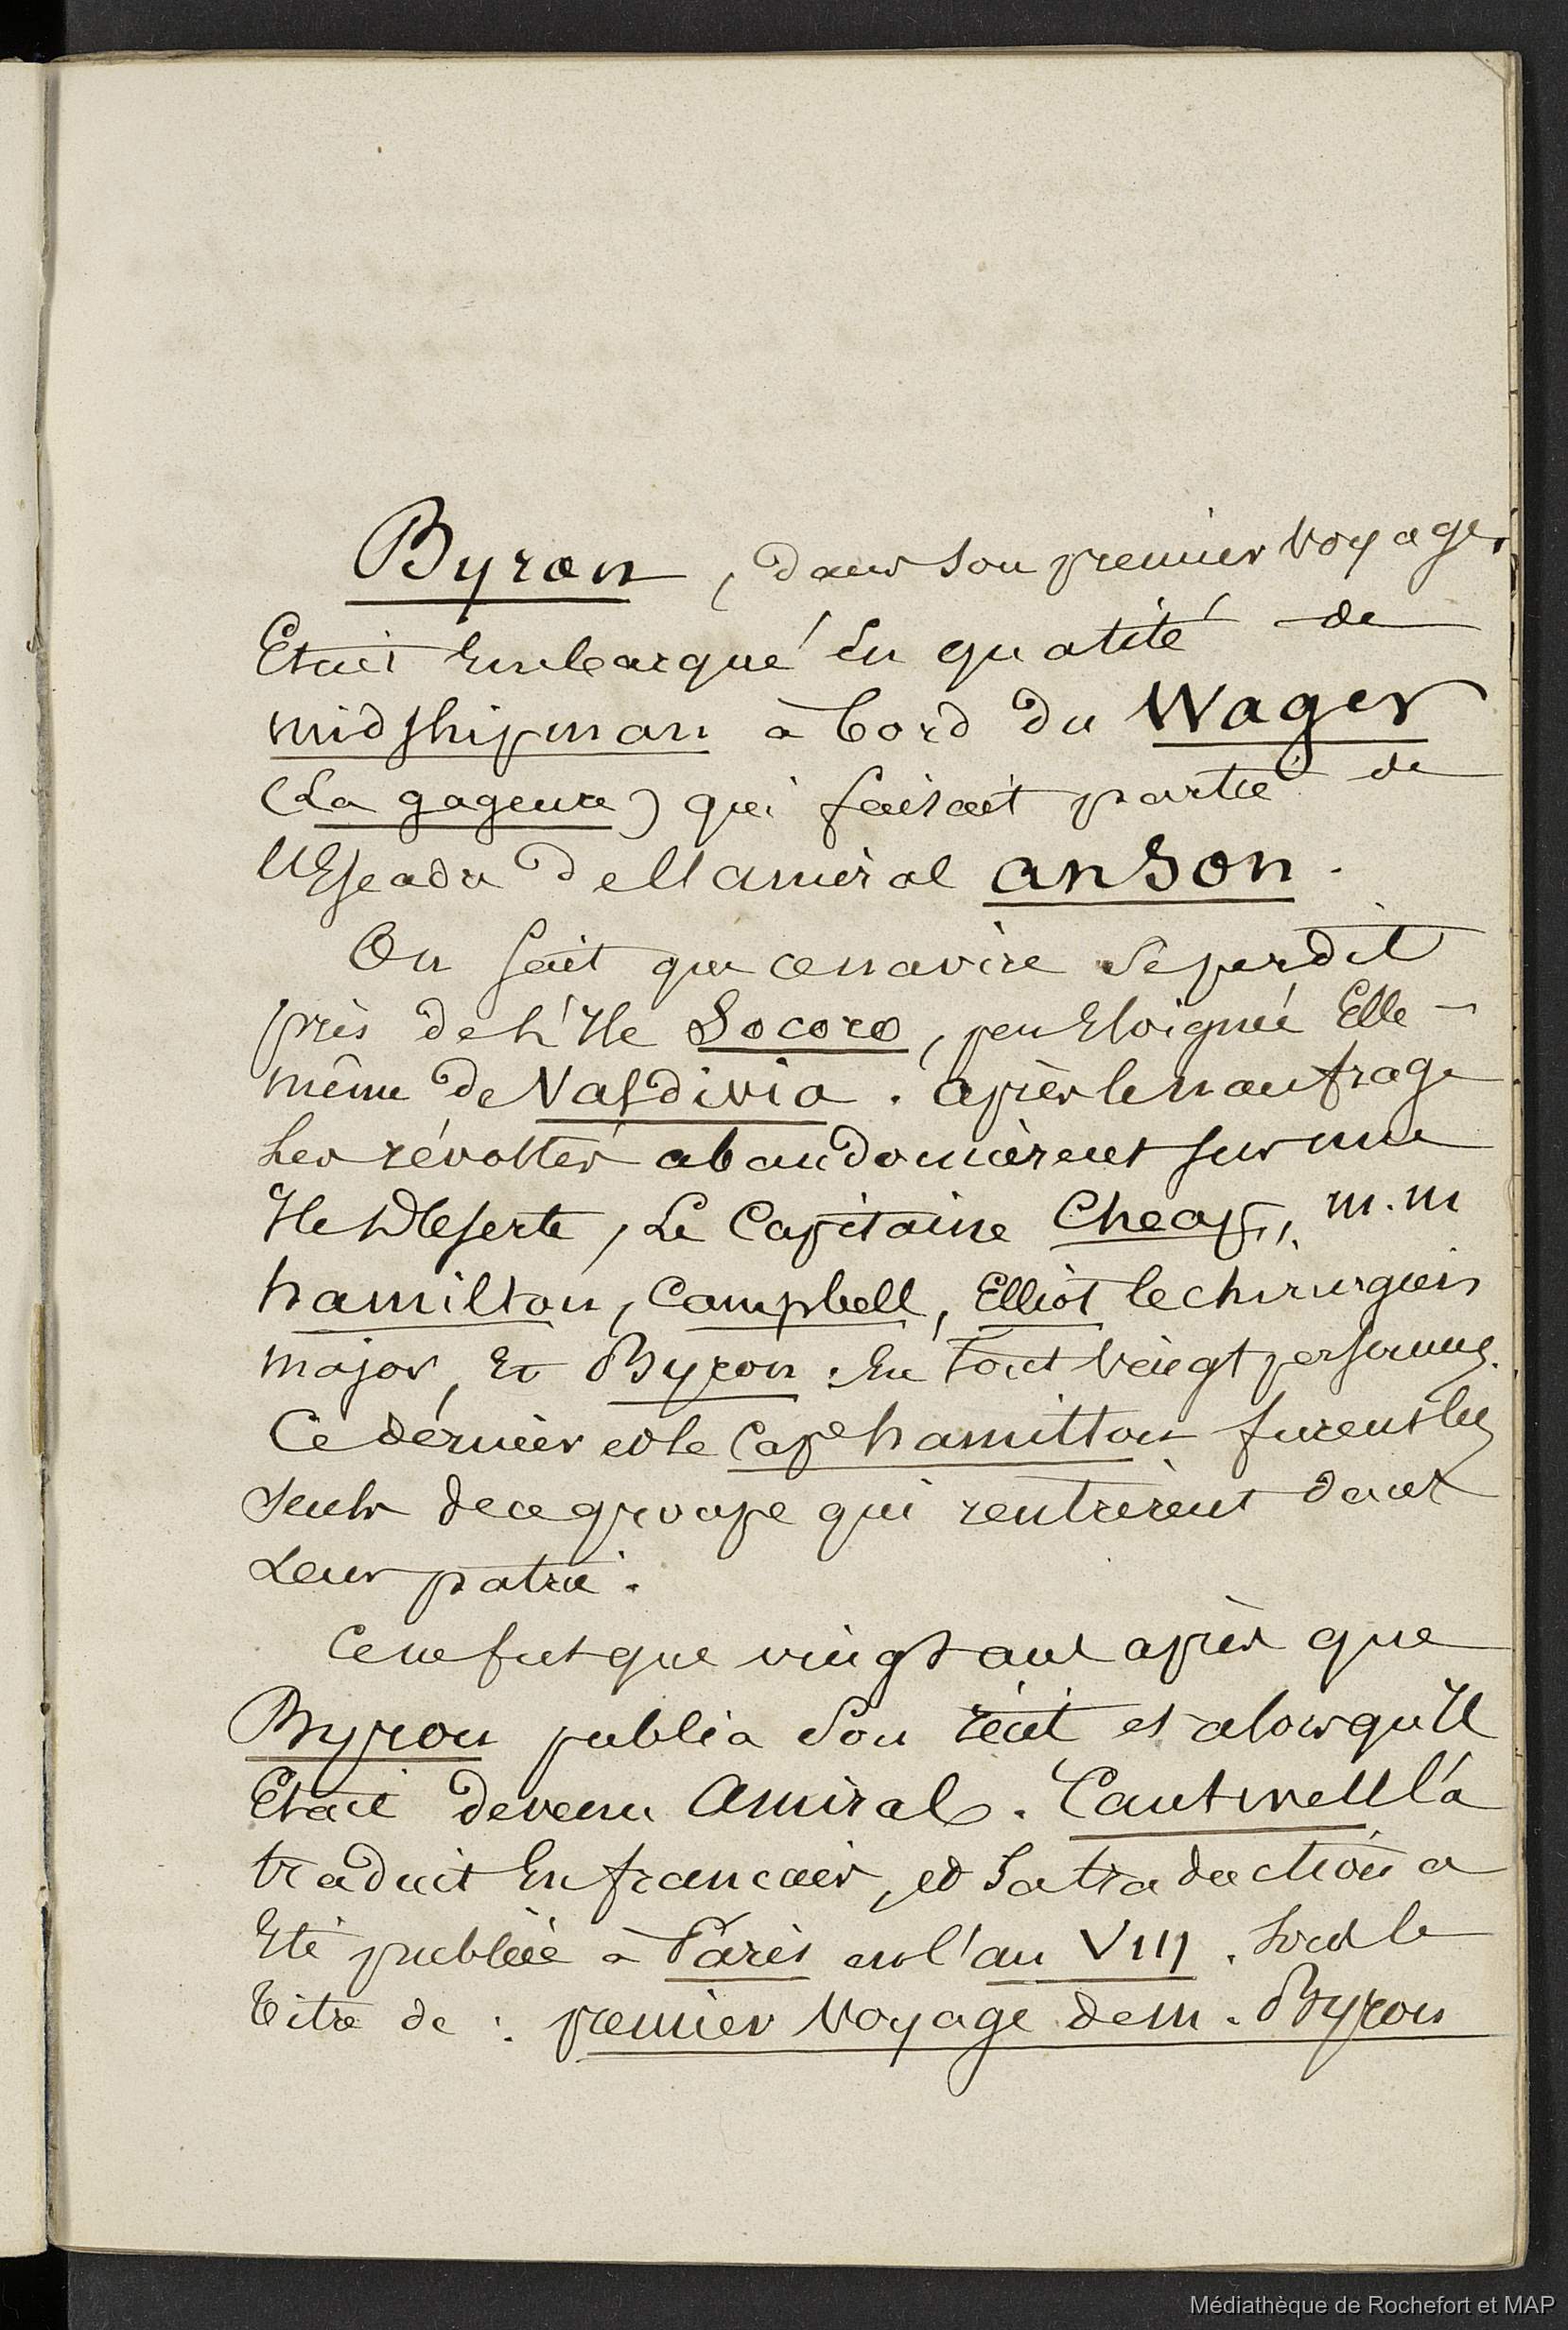 Byron, dans son premier voyage,
Etait Embarqué En qualité de
midshipman à bord du Wager
(La gageure) qui faisait partie de
l'Escadre de l'amiral anson.
On sait que ce navire se perdit
près de L'Ile Socoro, peu Eloignée Elle-
même de Valdivia. après le naufrage
Les révoltés abandonnèrent sur une
Ile Déserte, Le Capitaine Cheap, m.m
hamilton, Campbell, Elliot le chirurgien
major, Et Byron. En tout vingt personnes.
Ce dernier et le Cape hamilton furent les
seuls de ce groupe qui rentrèrent dans
Leur patrie.
Ce ne fut que vingt ans après que
Byron publia son récit et alors qu'Il
Etait devenu Amiral. Cantwell l'a
traduit En francais, et sa traduction a
Eté publiée à Paris en l'an VIII. sous le
titre de : premier voyage de m. Byron
Médiathèque de Rochefort et MAP